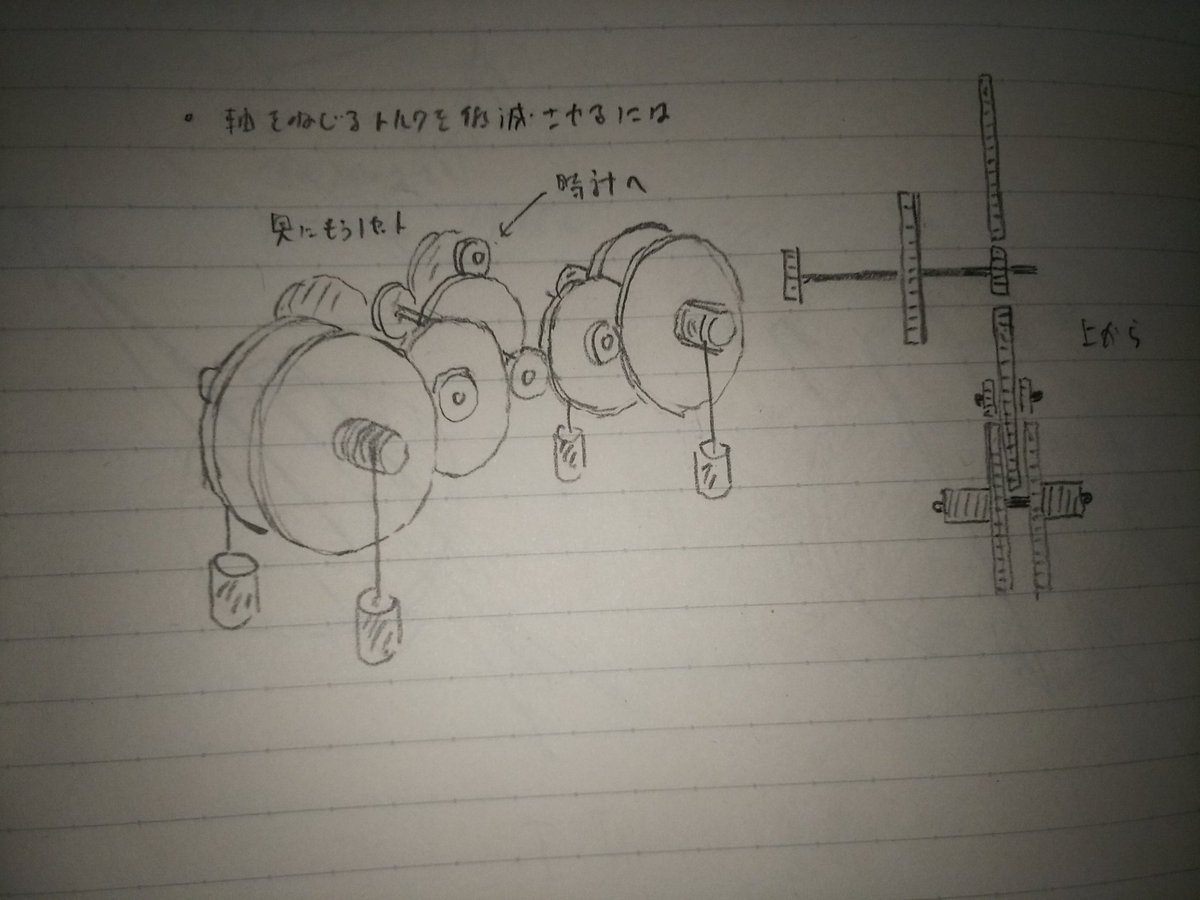 ・ 軸をねじるトルクを低減させるには
時計へ
奥にもう1セット
上から